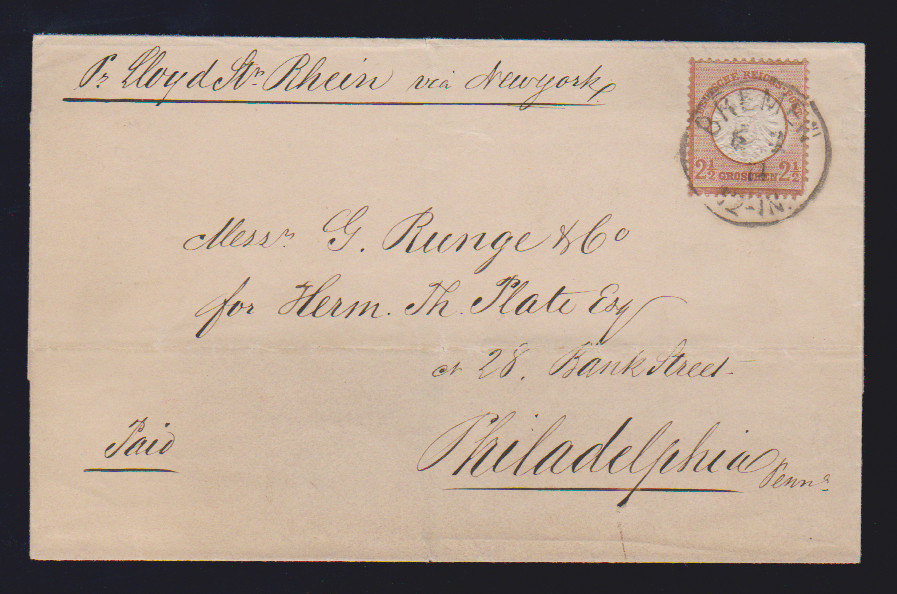 Pr Lloyd Str Rhein via Newyork.
DEUTSCHE REICHS-POST
2½ GROSCHEN 2½
BREMEN
6
12-1N.
Messrs G. Runge & Co
for Herm. Th. Plate Esq
28. Bank Street
Paid
Philadelphia
Penna